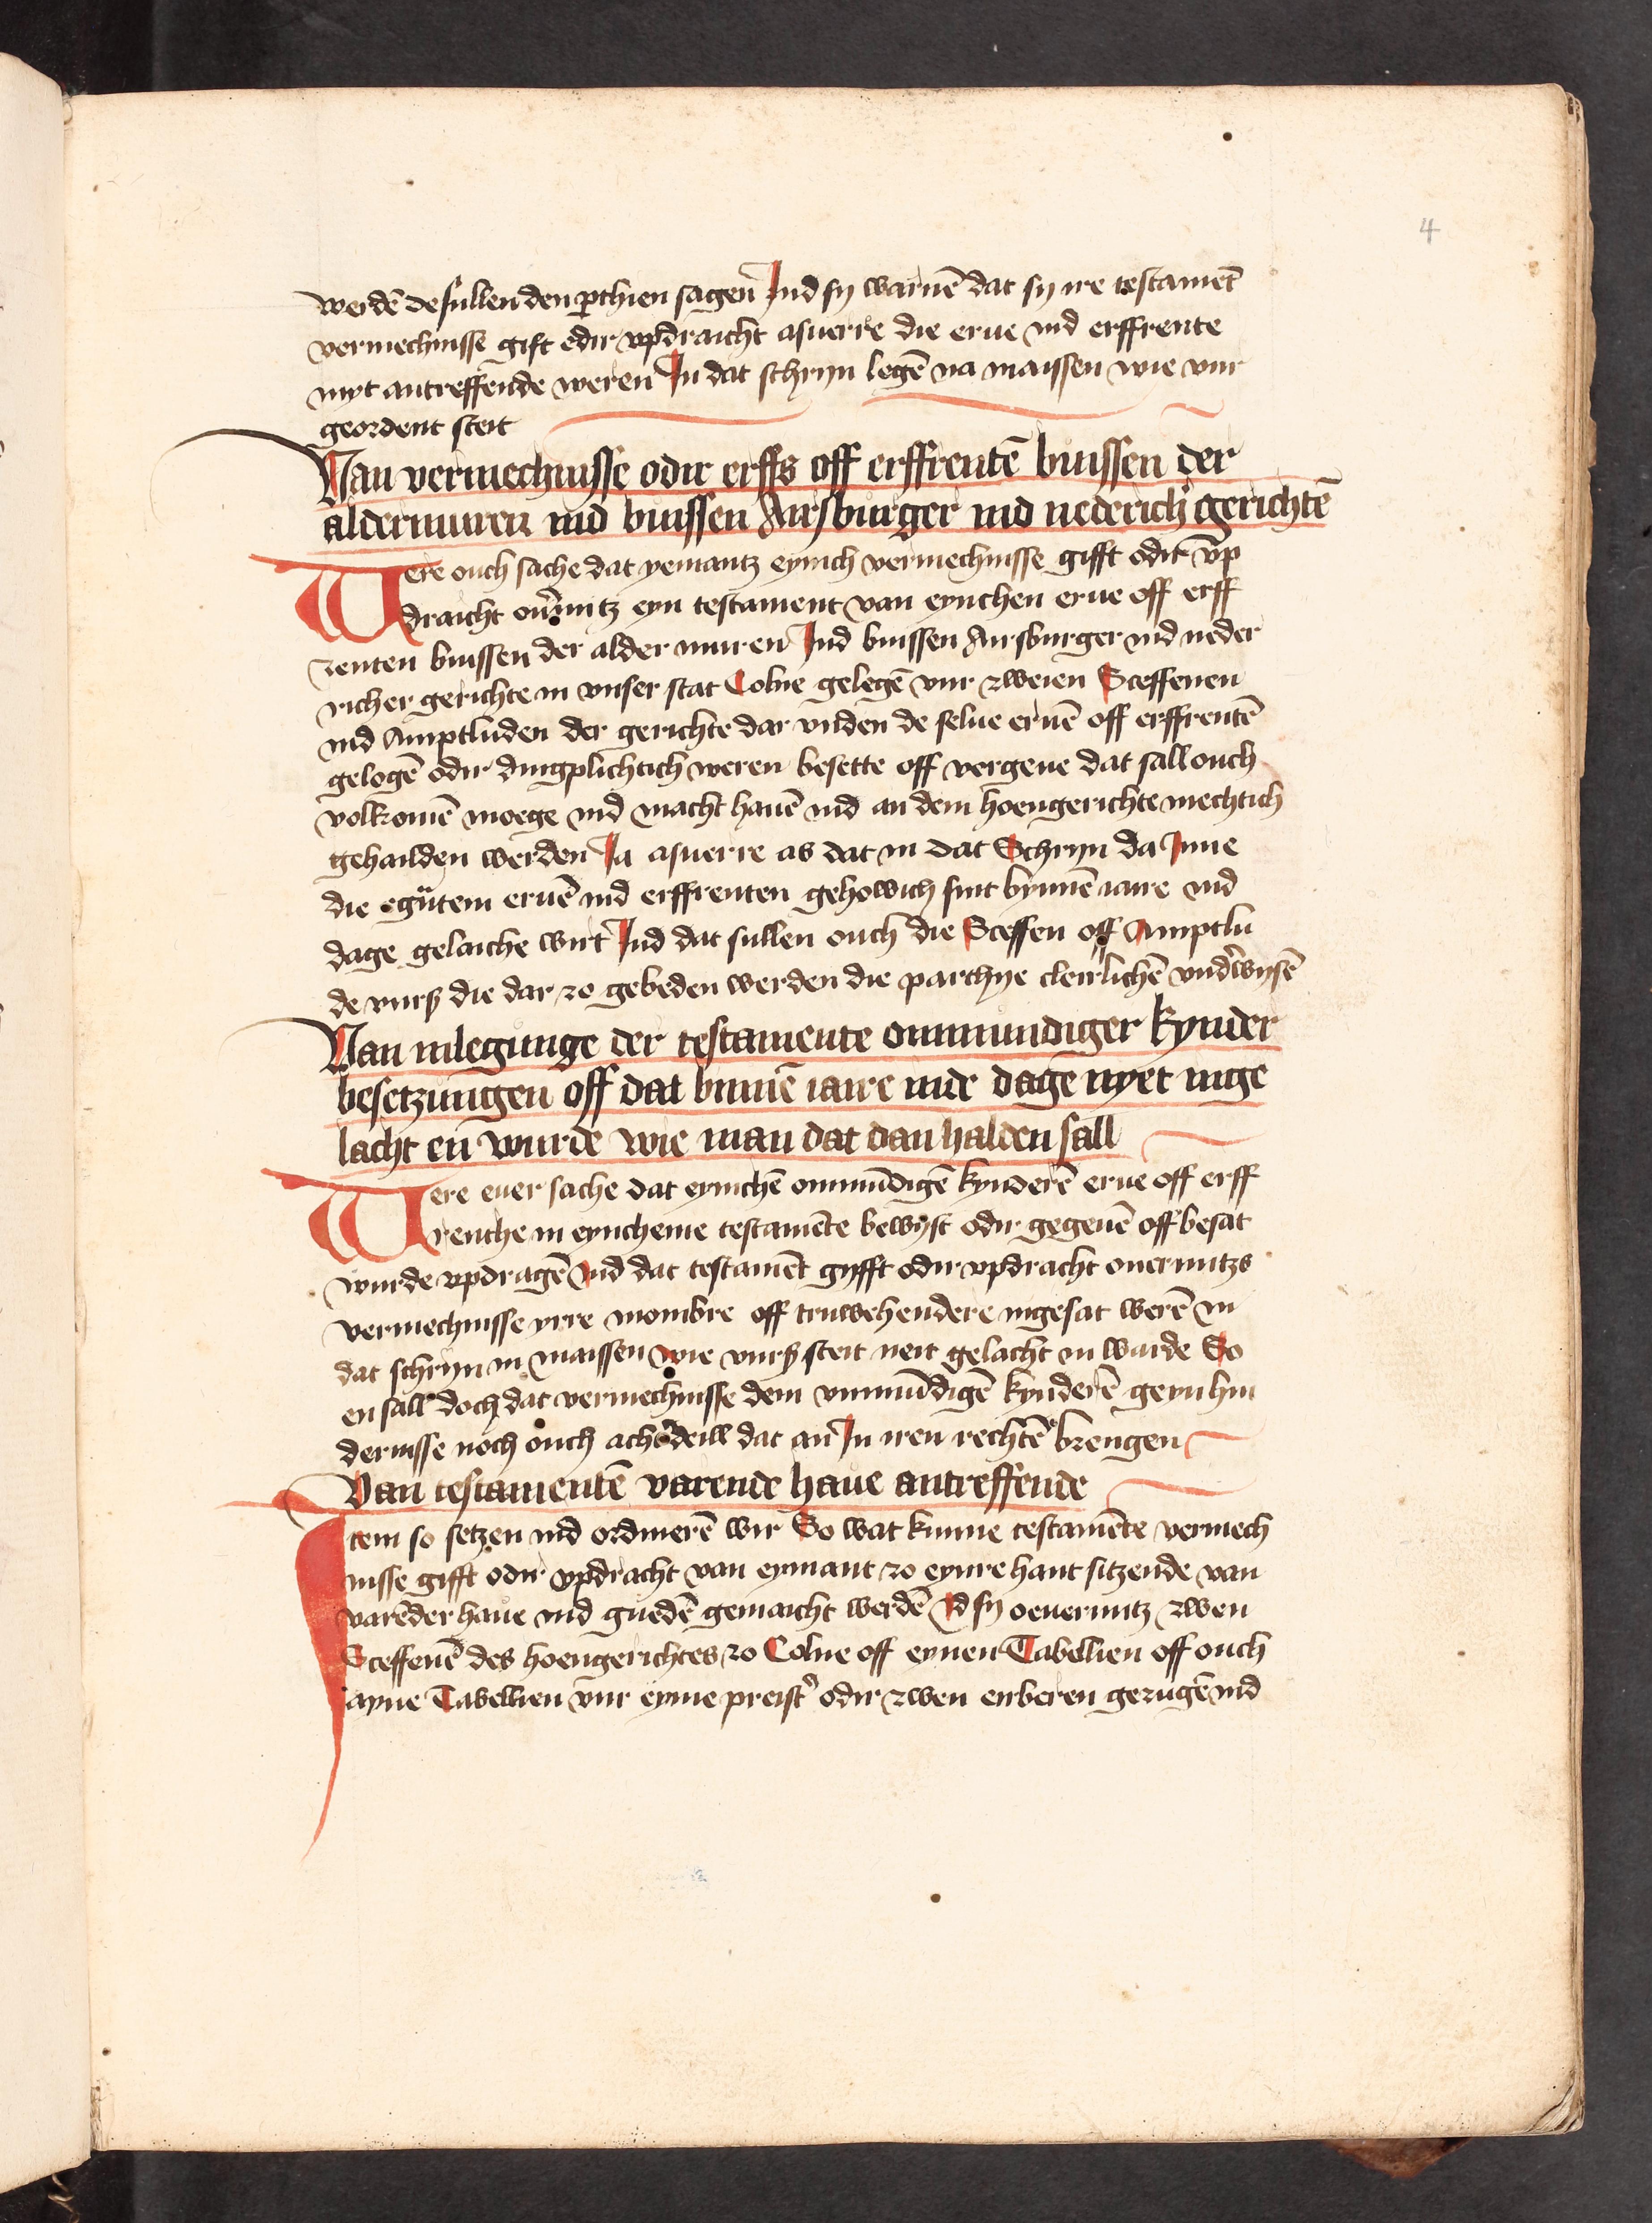 4
werdē de sullen den pthien sagen Ind sy warnē dat sy ire testamēt
vermechnisse gift edir vpdraicht asuerre die erue ind erffrente
myt antreffende weren In dat schryn legē na maissen wie vur
geordent steit
Van vermechnisse odir erffs off erffrentē buissen der
aldermuren ind buissen Airsburger ind nederich gerichtē
Were ouch sache dat yemantz eynich vermechnisse gifft odir vp
draicht ouermitz eyn testament van eynchen erue off erff
renten buissen der alder muren Ind buissen Airsburger ind neder
richer gerichte in vnser stat Colne gelegē vur zweien Sceffenen
ind Amptluden der gerichte dar vnden de selue eruē off erffrentē
gelogē odir dingplichtich weren besette off vergeue dat sall ouch
volkomē moege ind macht hauē ind an dem hoengerichte mechtich
gehailden werden Ja asuerre as dat in dat Schryn da Inne
die egūtem eruē ind erffrenten gehowich sint bynnē iaire ind
dage gelaicht wirt Ind dat sullen ouch die Sceffen off Amptlu
de vurß die dar zo gebeden werden die parthye cleirlichē vnderwysē
Van inlegunge der testamente onmundiger kynder
besetzungen off dat binnē iaire inde dage nyet inge
lacht en wurde wie man dat dan halden sall
Were euer sache dat eynichē onmūdigē kynderē erue off erff
renthe in eyncheme testamēte bewyst odir gegeuē off besat
wurde vpdragē Ind dat testamēt gyfft odir vpdracht ouermitzs
vermechnisse yrre mombre off truwehendere ingesat werē in
dat schryn in maissen wie vurß steit neit gelacht in wurde So
en sall doch dat vermechnisse dem vnmūdigē kynderē geyn hin
dernisse noch ouch achterdeill dat an In iren rechtē brengen
Van testamentē varende haue antreffende
Item so setzen ind ordinerē wir So wat kunne testamēte vermech
nisse gifft odir vpdracht van eymant zo eynre hant sitzende van
varēder haue ind guedē gemaicht werdē Id sy oeuermitz zwen
Sceffenē des hoengerichtes zo Colne off eynen Tabellien off ouch
ayne Tabellien vur eyme preister odir zwen eirberen gezugē ind